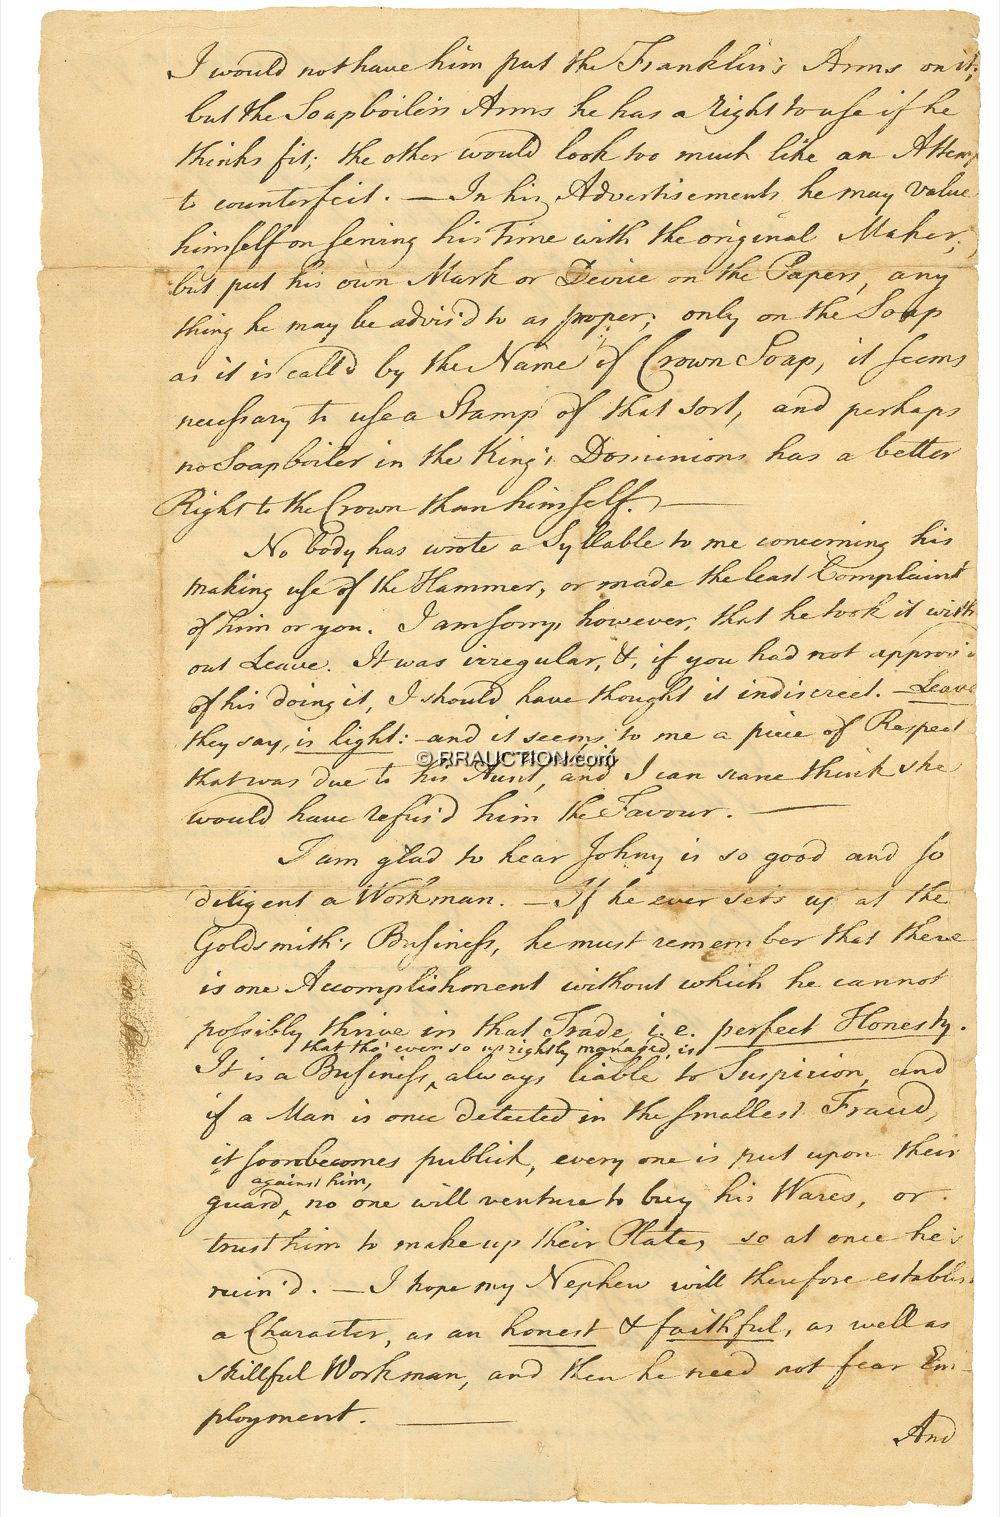 I would not have him put the Franklin's Arms on it;
but the Soapboilers Arms he has a Right to use if he
thinks fit; the other would look too much like an Attemp
to counterfeit. — In his Advertisements he may value
himself on serving his Time with the original Maker;
but put his own Mark or Device on the Papers, any
thing he may be advis'd to as proper; only on the Soap
as it is call'd by the Name of Crown Soap, it seems
necessary to use a Stamp of that sort, and perhaps
no Soapboiler in the King's Dominions has a better
Right to the Crown than himself. —
No body has wrote a Syllable to me concerning his
making use of the Hammer, or made the least Complaint
of him or you. I am sorry, however, that he took it with
out Leave. It was irregular, &, if you had not approv'd
of his doing it, I should have thought it indiscreet. — Leave
they say, is light: and it seems to me a piece of Respect
© RRAUCTION.com
that was due to his Aunt, and I can scarce think she
would have refus'd him the Favour. —
I am glad to hear Johny is so good and so
diligent a Workman. — If he ever sets up at the
Goldsmith's Business, he must remember that there
is one Accomplishment without which he cannot
possibly thrive in that Trade, i.e. perfect Honesty.
that tho' ever so uprightly managed, is
It is a Business, always liable to Suspicion, and
if a Man is once detected in the smallest Fraud,
it soon becomes publick, every one is put upon their
against him,
guard, no one will venture to buy his Wares, or
trust him to make up their Plate, so at once he's
ruin'd. — I hope my Nephew will therefore establish
a Character, as an honest & faithful, as well as
skillful Workman, and then he need not fear Em-
ployment. —
And